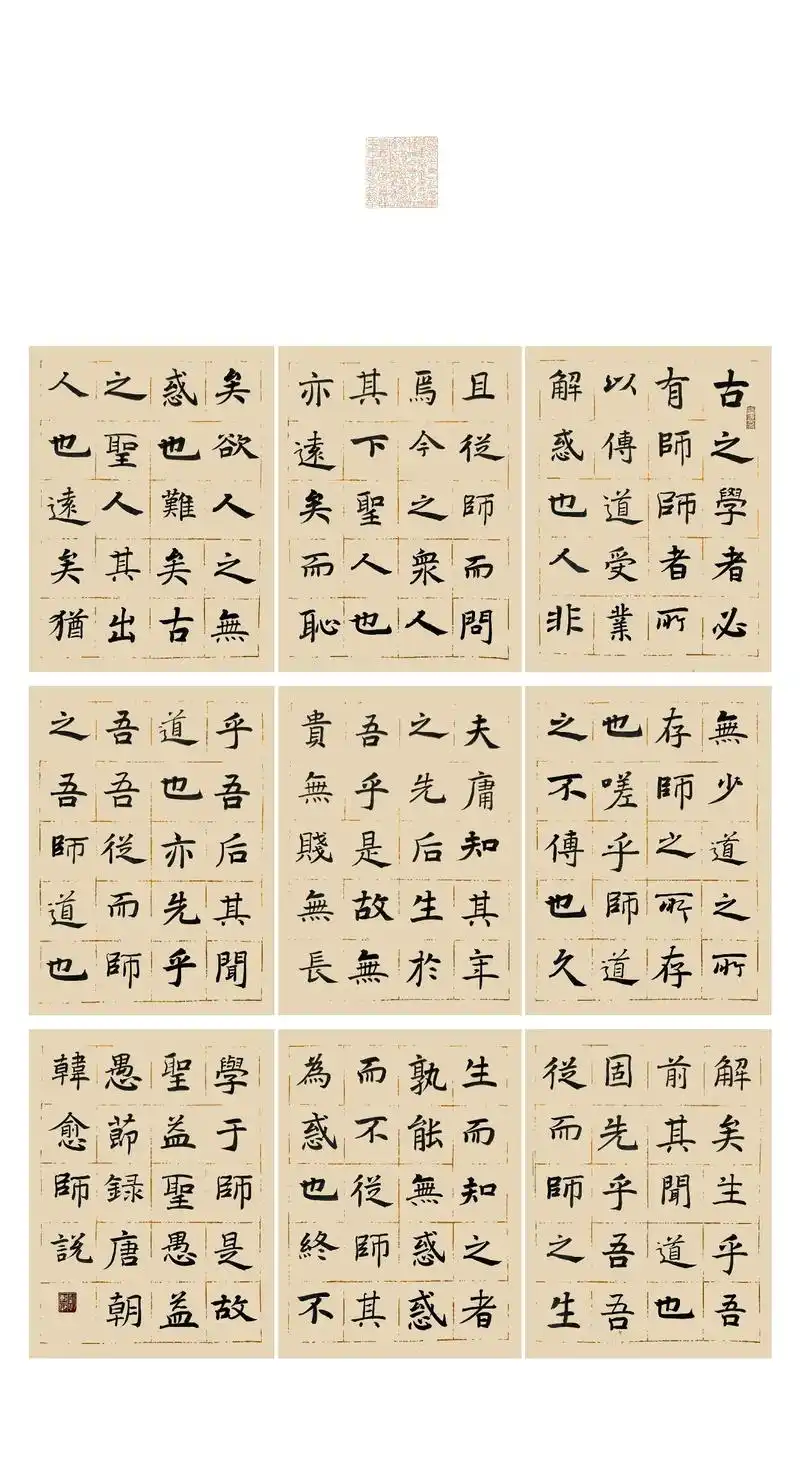 古之學者必
有師師者所
以傳道受業
解惑也人非
生而知之者
孰能無惑惑
而不從師其
為惑也終不
解矣生乎吾
前其聞道也
固先乎吾吾
從而師之生
乎吾后其聞
道也亦先乎
吾吾從而師
之吾師道也
夫庸知其年
之先后生於
吾乎是故無
貴無賤無長
無少道之所
存師之所存
也嗟乎師道
之不傳也久
矣欲人之無
惑也難矣古
之聖人其出
人也遠矣猶
且從師而問
焉今之衆人
其下聖人也
亦遠矣而恥
學于師是故
聖益聖愚益
愚節録唐朝
韓愈師說